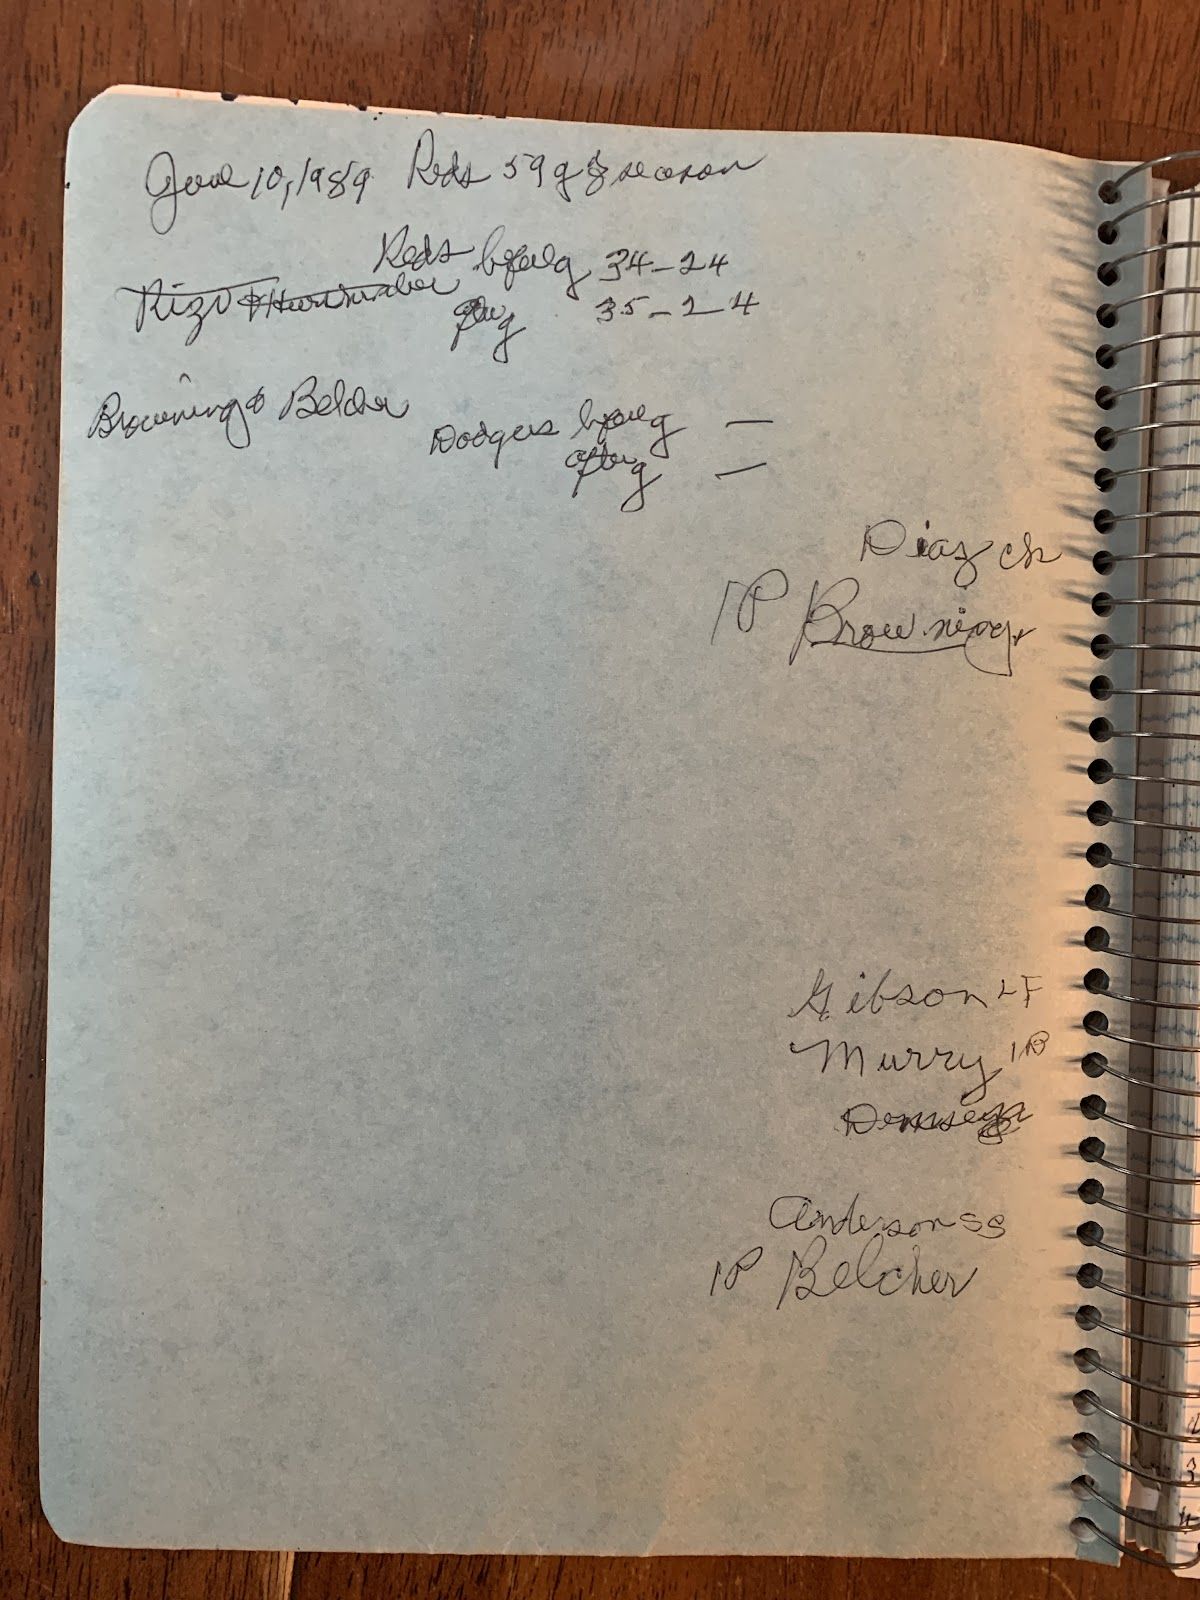 June 10, 1989 Reds 59 g of season
Reds before g 34-24
Rizo &
after g 35-24
Browning & Belcher
Dodgers before g —
after g —
Diaz ch
1P Browning
Gibson LF
Murry 1B
Demsey
Anderson SS
1P Belcher